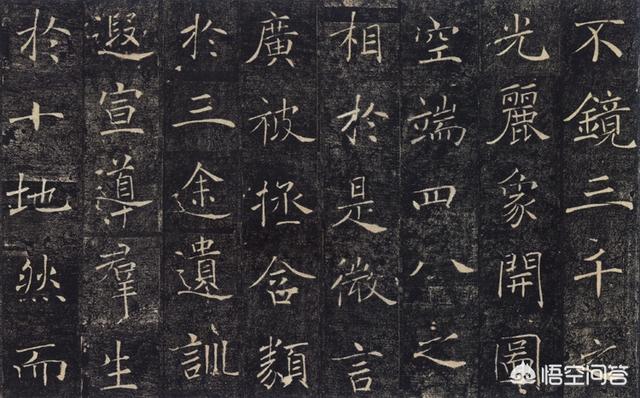 不鏡三千之
光麗象開圖
空端四八之
相於是微言
廣被拯含類
於三途遺訓
遐宣導羣生
於十地然而
悟空问答